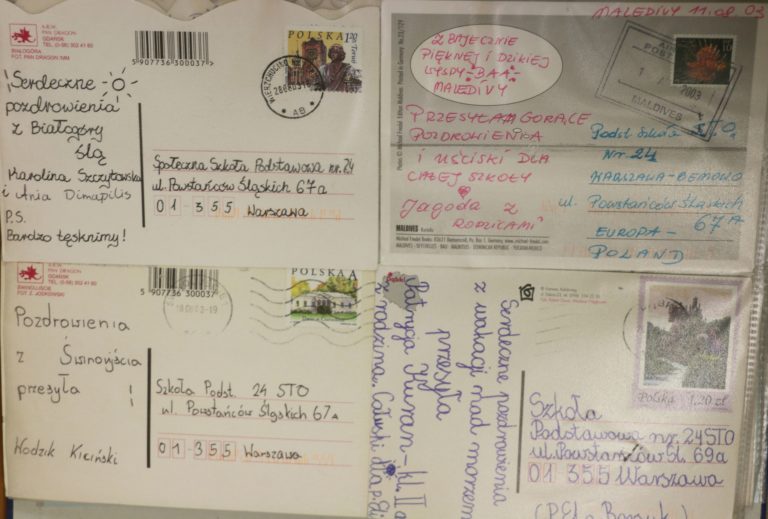 KIEW
PAN DRAGON
GDAŃSK
BIAŁOGÓRA
FOT. PAN DRAGON SIMI
5 907736 300037 >
Serdeczne
pozdrowienia
z Białogóry
ślą
Karolina Szczytowska
i Ania Dimapilis
P.S.
Bardzo tęsknimy!
POLSKA
1,20
Społeczna Szkoła Podstawowa nr. 24
ul. Powstańców Śląskich 67a
01-355 Warszawa
MALEDIVY 11.08.03
Z BAJECZNIE
PIĘKNEJ I DZIKIEJ
WYSPY-BAA-
MALEDIVY
PRZESYŁAM GORĄCE
POZDROWIENIA
I UŚCISKI DLA
CAŁEJ SZKOŁY
Jagoda z
RODZICAMI
MALDIVES
2003
MALDIVES
Podst Szkoła STO
Nr. 24
WARSZAWA-BEMOWO
ul. Powstańców Śląskich
67A
EUROPA-
POLAND
PAN DRAGON
GDAŃSK
ŚWINOUJŚCIE
5 907736 300037 >
Pozdrowienia
z Świnoujścia
przesyła !
Kodzik Kiciński
POLSKA A
Szkoła Podst. 24 STO
ul. Powstańców Śląskich 67A
01-355 Warszawa
Serdeczne pozdrowienia
z wakacji nad morzem
przesyła
Patrycja
kl. II a
z rodziną. Całuski dla p. Eli
Polska 1,20 zł
Szkoła
Podstawowa nr. 24 STO
ul. Powstańców Śl. 69a
01 355 Warszawa